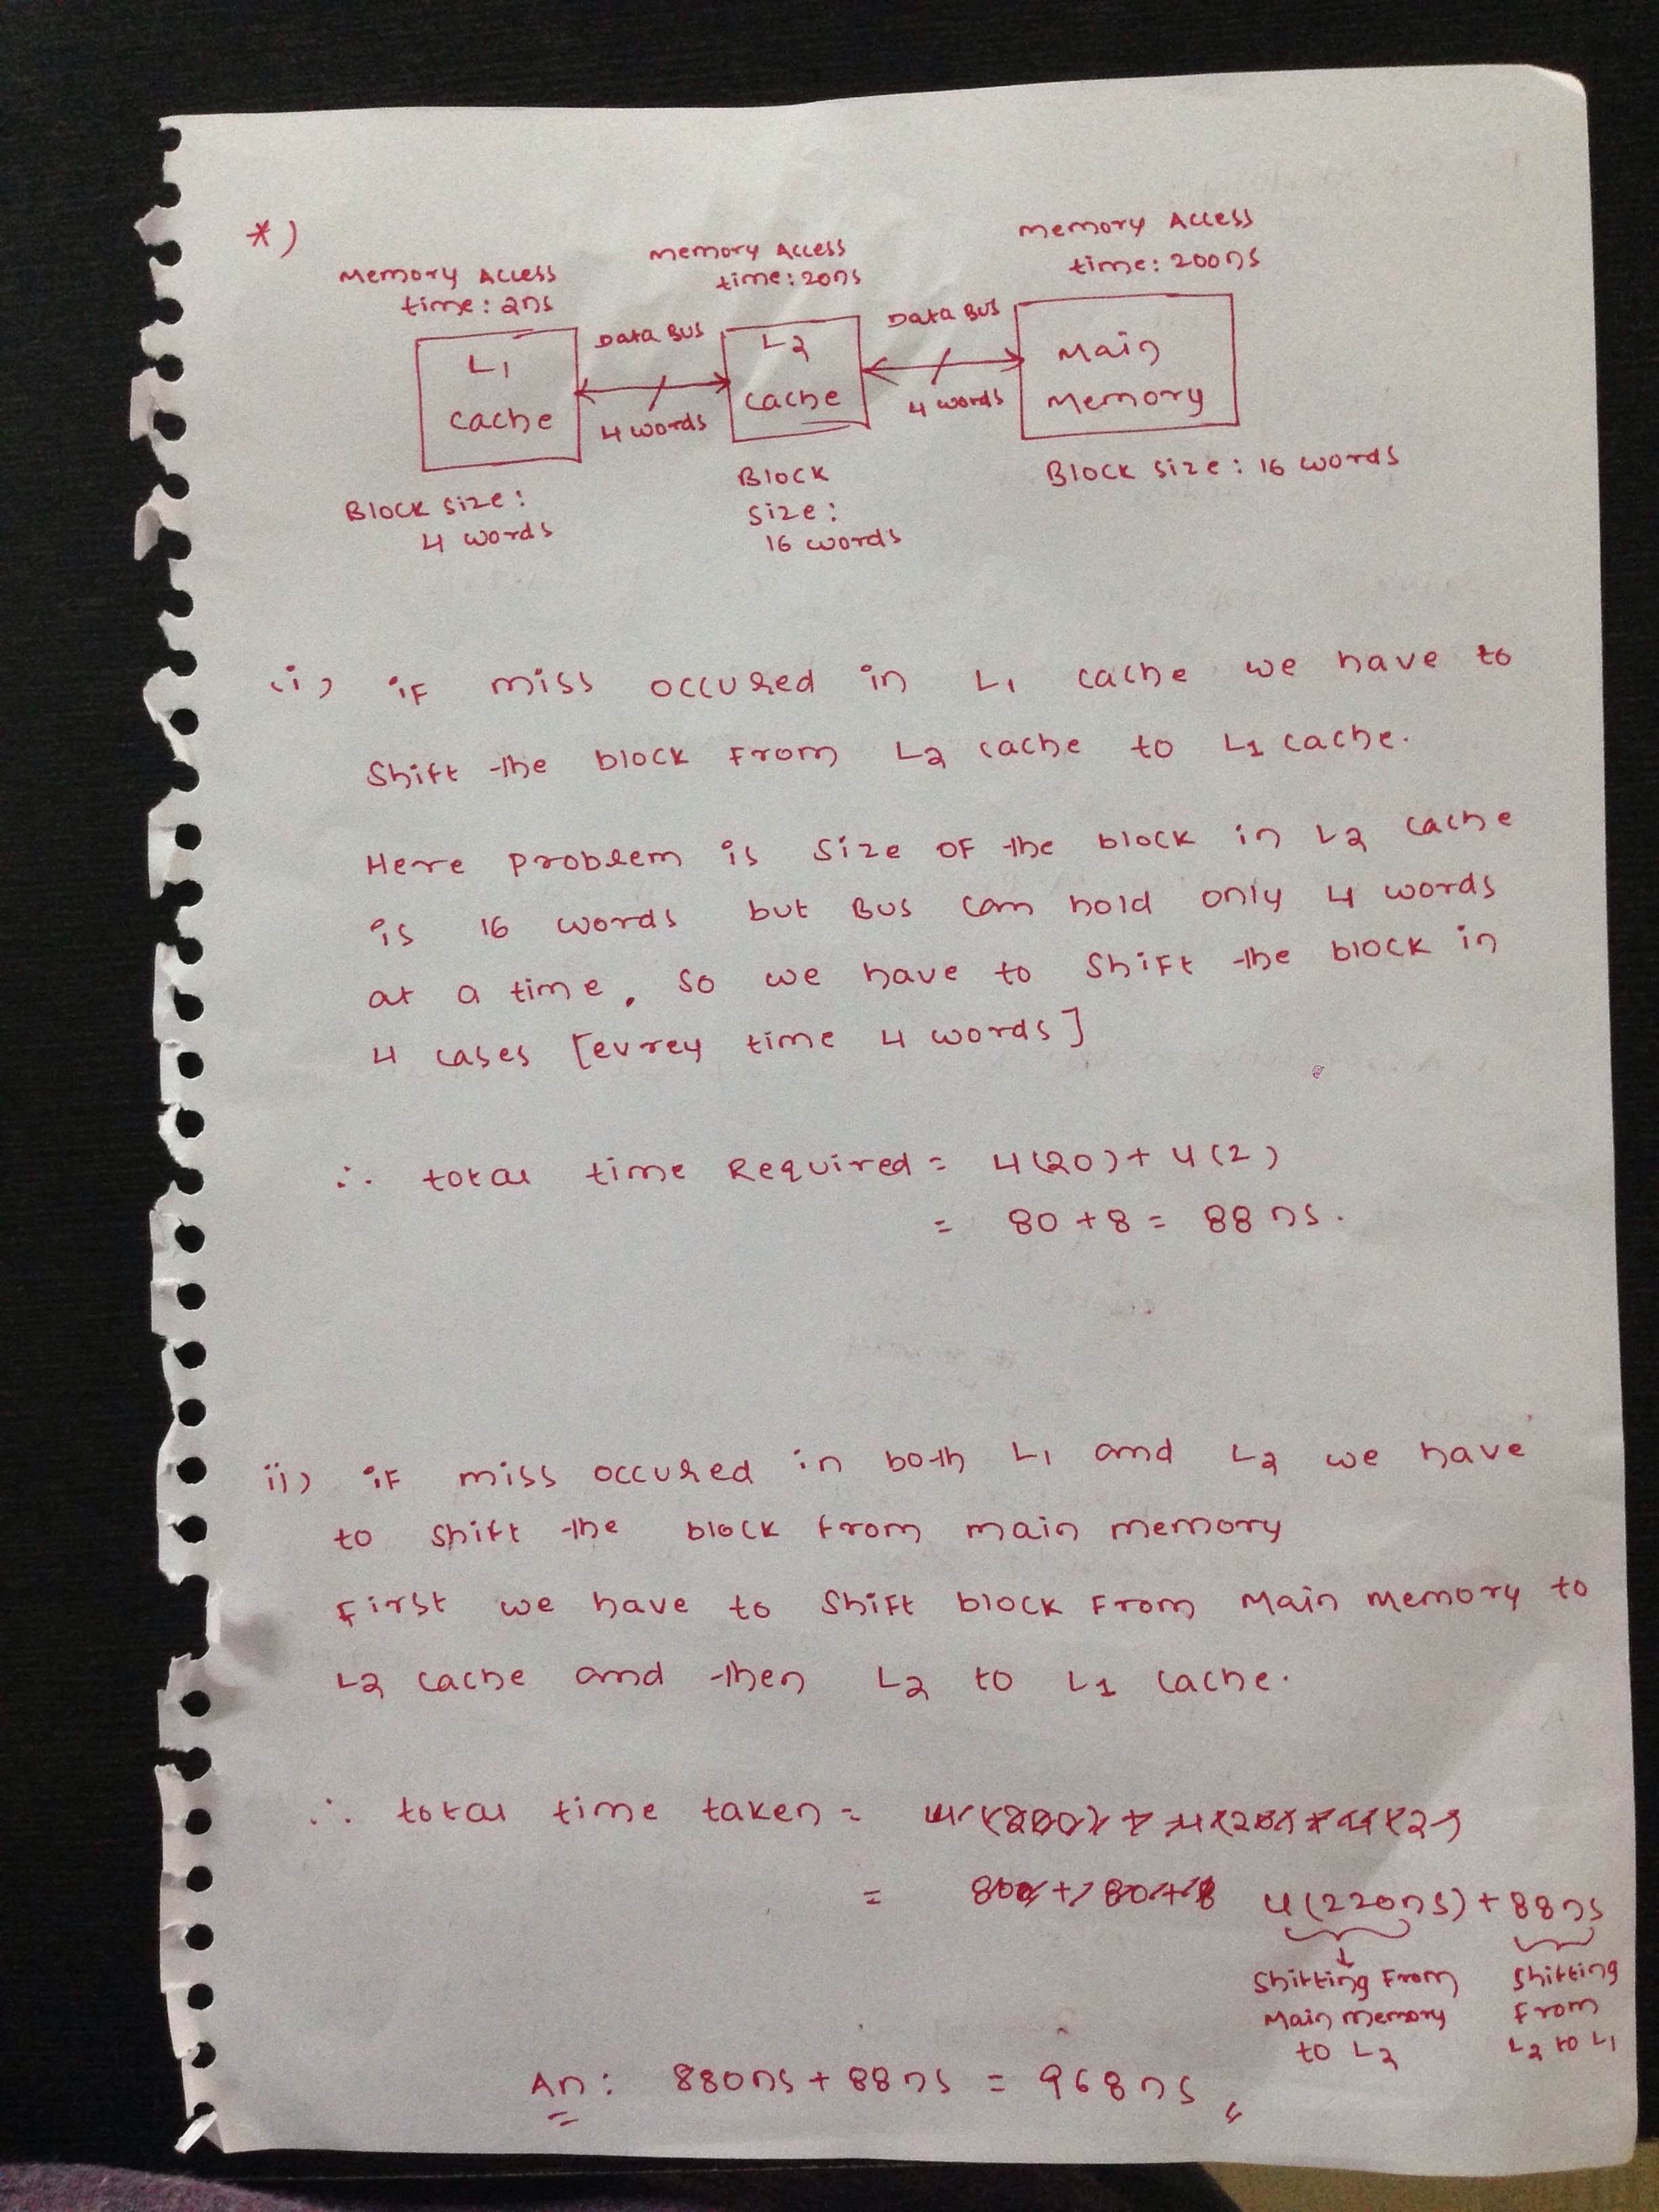 *)
Memory Access
time: 2ns
Memory Access
time: 20ns
Memory Access
time: 200ns
L1
cache
Data Bus
4 words
L2
cache
Data Bus
4 words
Main
Memory
Block size:
4 words
Block
size:
16 words
Block size: 16 words
(i) if miss occured in L1 cache we have to
shift the block from L2 cache to L1 cache.
Here problem is size of the block in L2 cache
is 16 words but Bus can hold only 4 words
at a time. So we have to shift the block in
4 cases [evrey time 4 words]
∴ total time Required = 4(20) + 4(2)
= 80 + 8 = 88 ns.
ii) if miss occured in both L1 and L2 we have
to shift the block from main memory
First we have to shift block from Main memory to
L2 cache and then L2 to L1 cache.
∴ total time taken =
= 4(220ns) + 88ns
Shifting From
Main memory
to L2
Shifting
From
L2 to L1
An: 880ns + 88ns = 968ns